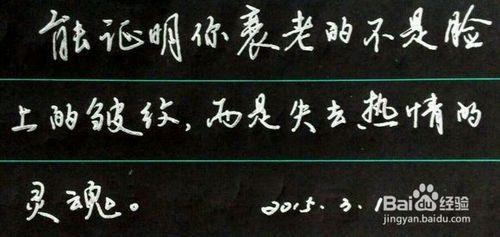 能证明你衰老的不是脸
上的皱纹,而是失去热情的
灵魂。 2015.3.1
Baidu经验
jingyan.baidu.com